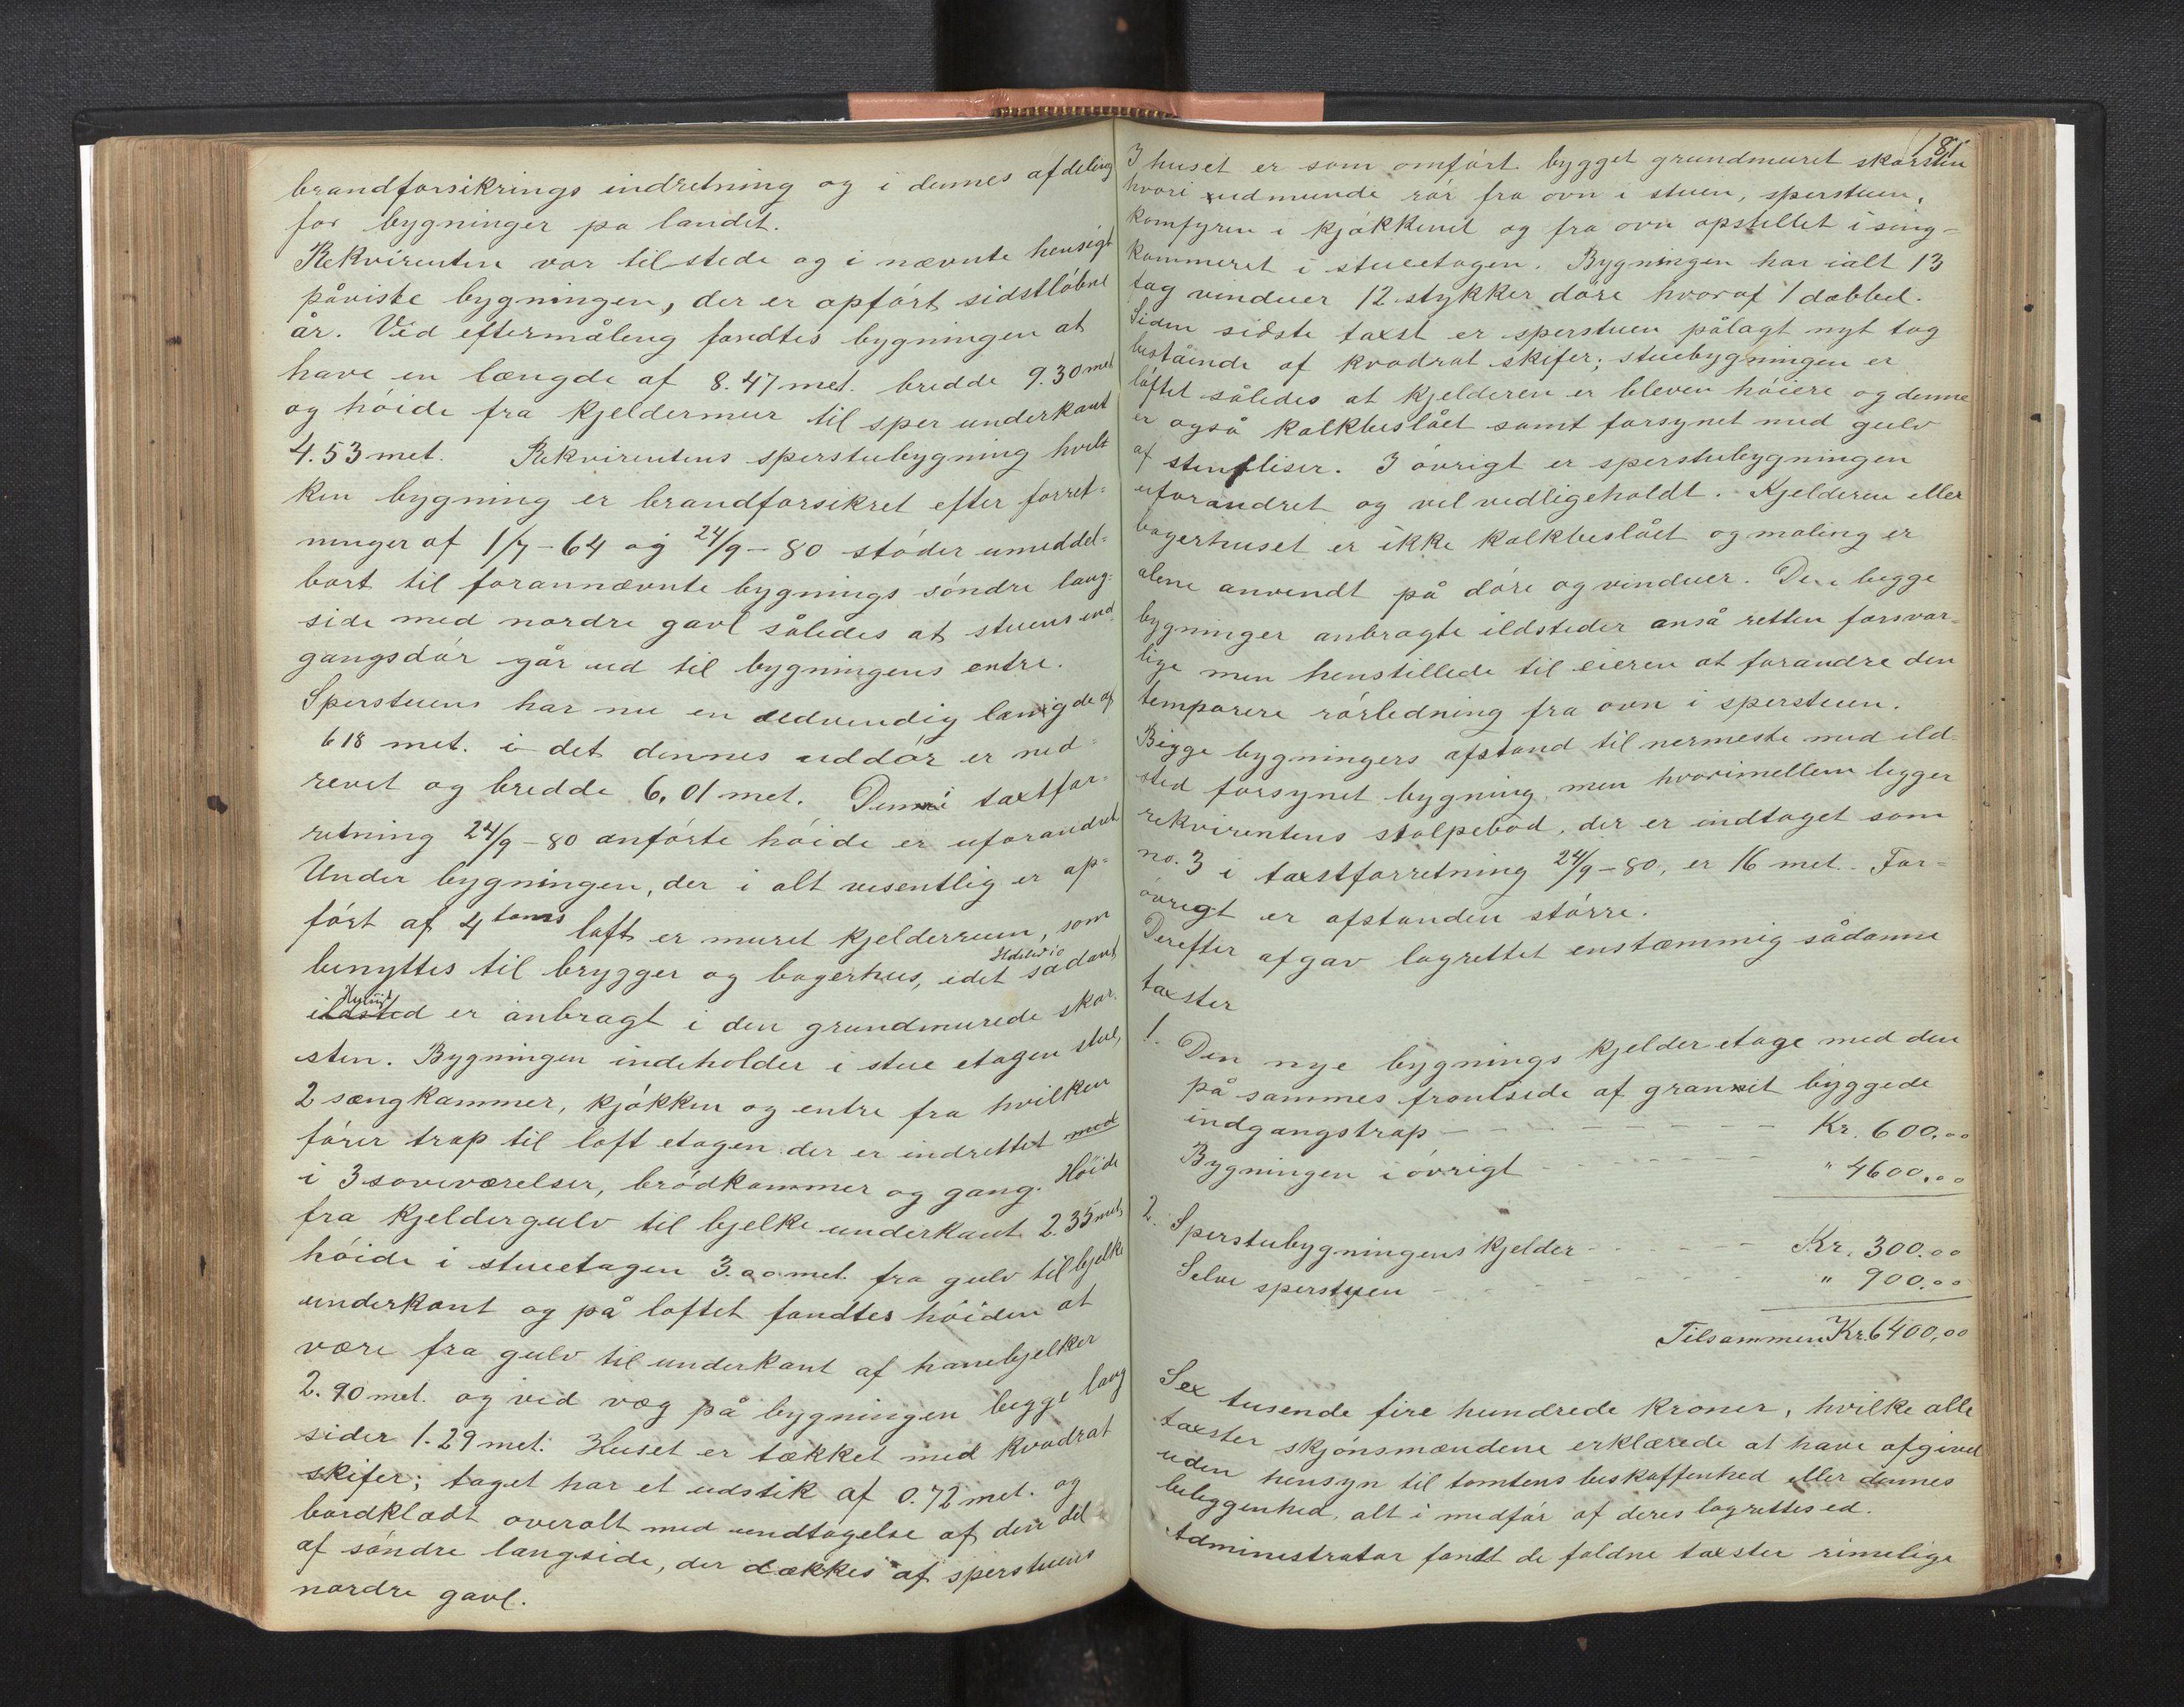 brandforsikrings indretning og i dennes afdeling
for bygninger på landet.
Rekvirenten var tilstede og i nævnte hensigt
påviste bygningen, der er opført sidstløbne
år. Ved eftermåling fandtes bygningen at
have en længde af 8.47 met. bredde 9.30 met
og høide fra kjeldermur til sper underkant
4.53 met. Rekvirentens sperstubygning hvil-
ken bygning er brandforsikret efter forret-
ninger af 1/7-64 og 24/9-80 støder umiddel-
bart til forannævnte bygnings søndre lang-
side med nordre gavl således at stuens ind-
gangsdør går ud til bygningens entre.
Sperstuens har nu en udvendig længde af
618 met. i det dennes uddør er ned-
revet og bredde 6,01 met. Den i taxtfor-
retning 24/9-80 anførte høide er uforandret
Under bygningen, der i alt vesentlig er op-
ført af 4 toms laft er muret kjelderrum, som
benyttes til brygger og bagerhus, idet sådant
ildsted er anbragt i den grundmurede skor-
sten. Bygningen indeholder i stue etagen stue,
2 sængkammer, kjøkken og entre fra hvilken
fører trap til loft etagen der er indrettet med
i 3 soveværelser, brødkammer og gang. Høide
fra kjeldergulv til bjelke underkant 2.35 met,
høide i stueetagen 3.00 met. fra gulv til bjelke
underkant og på loftet fandtes høiden at
være fra gulv til underkant af hanebjelker
2.90 met. og ved væg på bygningen begge lang
sider 1.29 met. Huset er tækket med kvadrat
skifer; taget har et udstik af 0.72 met. og
bordklædt overalt med undtagelse af den del
af søndre langside, der dækkes af sperstuens
nordre gavl.
181
I huset er som omført bygget grundmuret skorsten
hvori udmunde rør fra ovn i stuen, sperstuen,
komfyren i kjøkkenet og fra ovn opstillet i seng-
kammeret i stueetagen. Bygningen har ialt 13
fag vinduer 12 stykker døre hvoraf 1 dobbel.
Siden sidste taxt er sperstuen pålagt nyt tag
bestående af kvadrat skifer; stuebygningen er
løftet således at kjelderen er bleven høiere og denne
er også kalkbeslået samt forsynet med gulv
af stenfliser. I øvrigt er sperstubygningen
uforandret og vel vedligeholdt. Kjelderen eller
bagerhuset er ikke kalkbeslået og maling er
alene anvendt på døre og vinduer. De i begge
bygninger anbragte ildsteder anså retten forsvar-
lige men henstillede til eieren at forandre den
temporære rørledning fra ovn i sperstuen.
Begge bygningers afstand til nermeste med ild-
sted forsynet bygning, men hvorimellem ligger
rekvirentens stolpebod, der er indtaget som
no. 3 i taxstforretning 24/9-80, er 16 met. For-
øvrigt er afstanden større.
Derefter afgav lagrettet enstæmmig sådanne
taxster
1. Den nye bygnings kjelder etage med den
på sammes frontside af granit byggede
indgangstrap - - - - - - - Kr. 600,00
Bygningen i øvrigt - - - - - - " 4600,00
2. Sperstubygningens kjelder - - - - - Kr. 300.00
Selve sperstuen - - - - - - " 900.00
Tilsammen Kr. 6400,00
Sex tusende fire hundrede kroner, hvilke alle
taxster skjønsmændene erklærede at have afgivet
uden hensyn til tomtens beskaffenhed eller dennes
beliggenhed, alt i medfør af deres lagrettesed.
Administrator fandt de faldne taxster rimelige